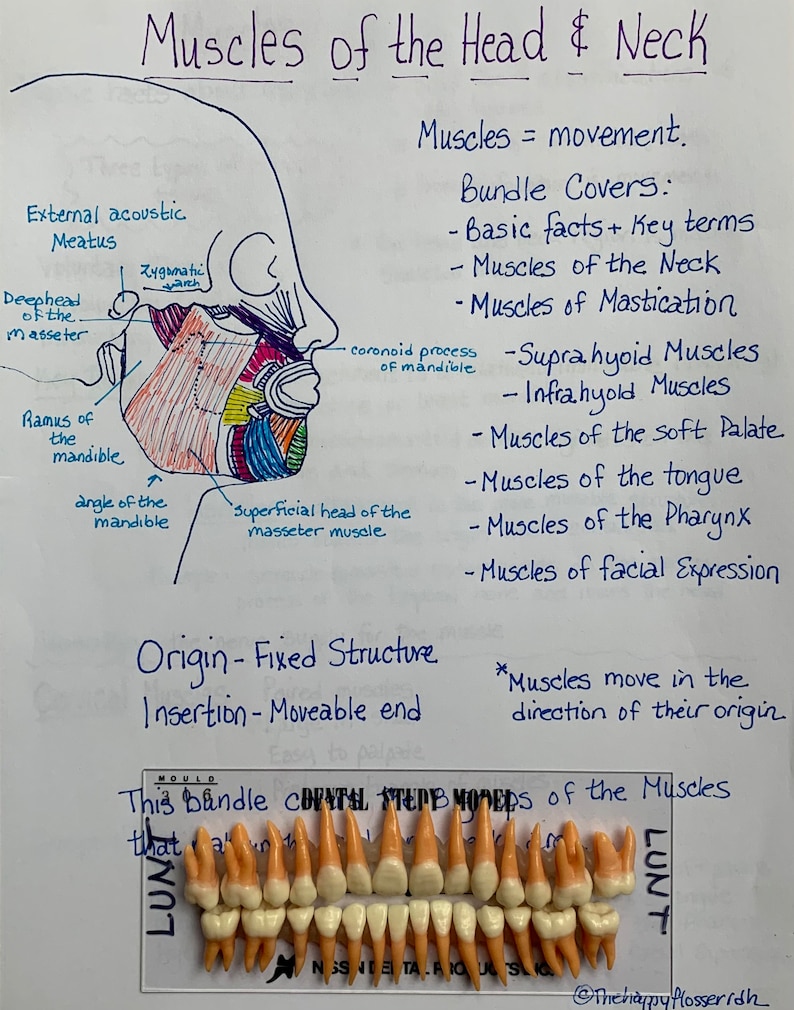 Muscles of the Head & Neck
Muscles = movement.
Bundle Covers:
- Basic facts + Key terms
- Muscles of the Neck
- Muscles of Mastication
- Suprahyoid Muscles
- Infrahyoid Muscles
- Muscles of the soft Palate
- Muscles of the tongue
- Muscles of the Pharynx
- Muscles of facial Expression
External acoustic
Meatus
Zygomatic
arch
Deephead
of the
masseter
coronoid process
of mandible
Ramus of
the
mandible
angle of the
mandible
Superficial head of the
masseter muscle
Origin - Fixed Structure
Insertion - Moveable end
*Muscles move in the
direction of their origin
This bundle the 8 groups of the Muscles
that
MOULD
306
DENTAL STUDY MODEL
LUNT
LUNT
NISSIN DENTAL PRODUCTS INC.
©Thehappyflosserrdh